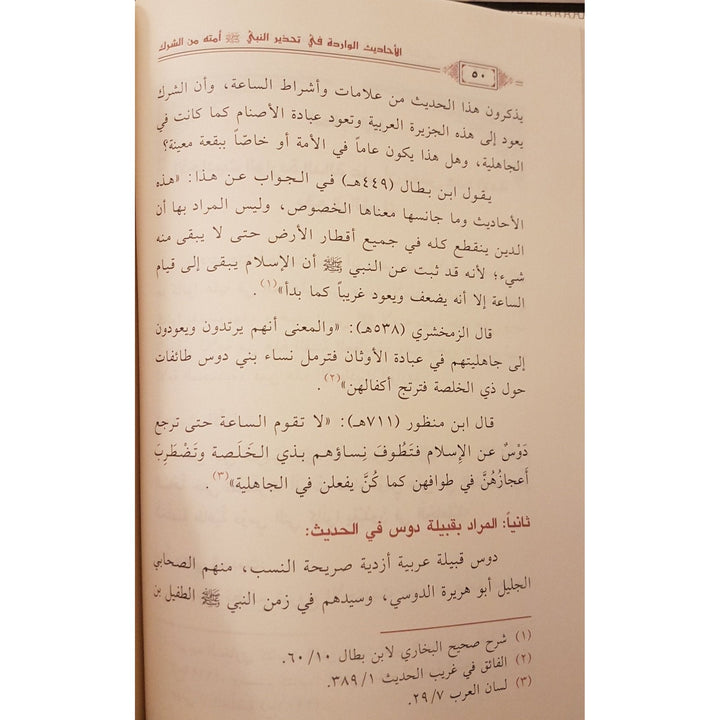 الأحاديث الواردة في تحذير النبي ﷺ أمته من الشرك
٥٠
يذكرون هذا الحديث من علامات وأشراط الساعة، وأن الشرك
يعود إلى هذه الجزيرة العربية وتعود عبادة الأصنام كما كانت في
الجاهلية، وهل هذا يكون عاماً في الأمة أو خاصّاً ببقعة معينة؟
يقول ابن بطال (٤٤٩هـ) في الجواب عن هذا: «هذه
الأحاديث وما جانسها معناها الخصوص، وليس المراد بها أن
الدين ينقطع كله في جميع أقطار الأرض حتى لا يبقى منه
شيء؛ لأنه قد ثبت عن النبي ﷺ أن الإسلام يبقى إلى قيام
الساعة إلا أنه يضعف ويعود غريباً كما بدأ»(١).
قال الزمخشري (٥٣٨هـ): «والمعنى أنهم يرتدون ويعودون
إلى جاهليتهم في عبادة الأوثان فترمل نساء بني دوس طائفات
حول ذي الخلصة فترتج أكفالهن»(٢).
قال ابن منظور (٧١١هـ): «لا تقوم الساعة حتى ترجع
دَوْسٌ عن الإِسلام فتَطُوفَ نِساؤهم بذي الخَلَصة وتَضْطَرِبَ
أَعجازُهُنَّ في طوافهن كما كُنَّ يفعلن في الجاهلية»(٣).
ثانياً: المراد بقبيلة دوس في الحديث:
دوس قبيلة عربية أزدية صريحة النسب، منهم الصحابي
الجليل أبو هريرة الدوسي، وسيدهم في زمن النبي ﷺ الطفيل بن
(١) شرح صحيح البخاري لابن بطال ٦٠/١٠.
(٢) الفائق في غريب الحديث ٣٨٩/١.
(٣) لسان العرب ٢٩/٧.